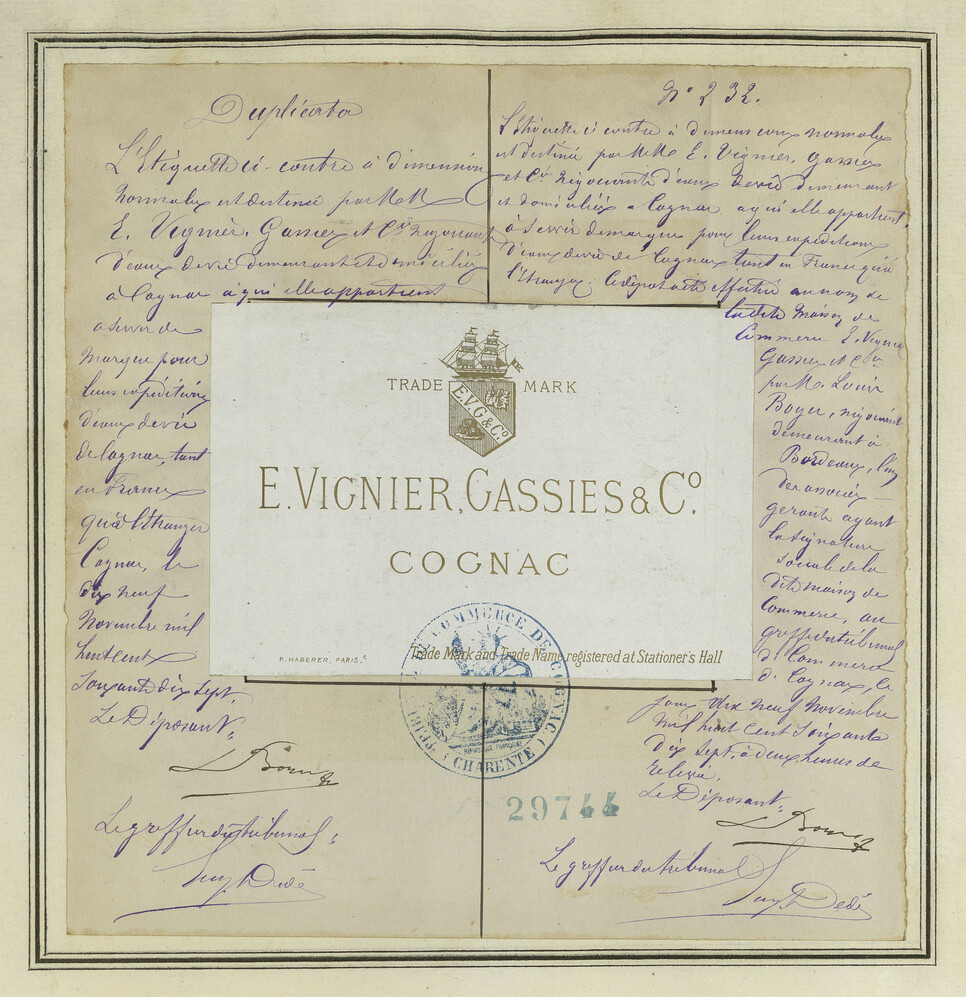 Duplicata
L'Etiquette ci-contre à dimension
normales est destinée par MM
E. Vignier, Gassies et Cie négociants
d'eaux de vie demeurant et domiciliés
à Cognac à qui elle appartient
à servir de
marque pour
leurs expéditions
d'eaux de vie
de Cognac, tant
en France
qu'à l'étranger
Cognac, le
dix neuf
Novembre mil
huit cent
soixante dix sept.
Le Déposant,
Le greffier du tribunal,
N° 232.
L'étiquette ci contre à dimensions normales
est destinée par MM. E. Vignier, Gassies
et Cie négociants d'eaux de vie demeurant
et domiciliés à Cognac à qui elle appartient,
à servir de marque pour leurs expéditions
d'eaux de vie de Cognac tant en France qu'à
l'étranger. Ce dépôt a été effectué au nom de
la dite Maison de
Commerce E. Vignier
Gassies et Cie
par M. Louis
Boyer, négociant
demeurant à
Bordeaux, l'un
des associés
gérants ayant
la signature
sociale de la
dite maison de
Commerce, au
greffe du tribunal
de Commerce
de Cognac, le
jour dix neuf Novembre
mil huit cent soixante
dix sept, à deux heures de
relevée.
Le Déposant,
Le greffier du tribunal
TRADE MARK
E.V.G & Co
E. VIGNIER, GASSIES & Co.
COGNAC
P. HABERER, PARIS.
Trade Mark and Trade Name registered at Stationer's Hall
DE COMMERCE DE COGNAC
(CHARENTE)
29744